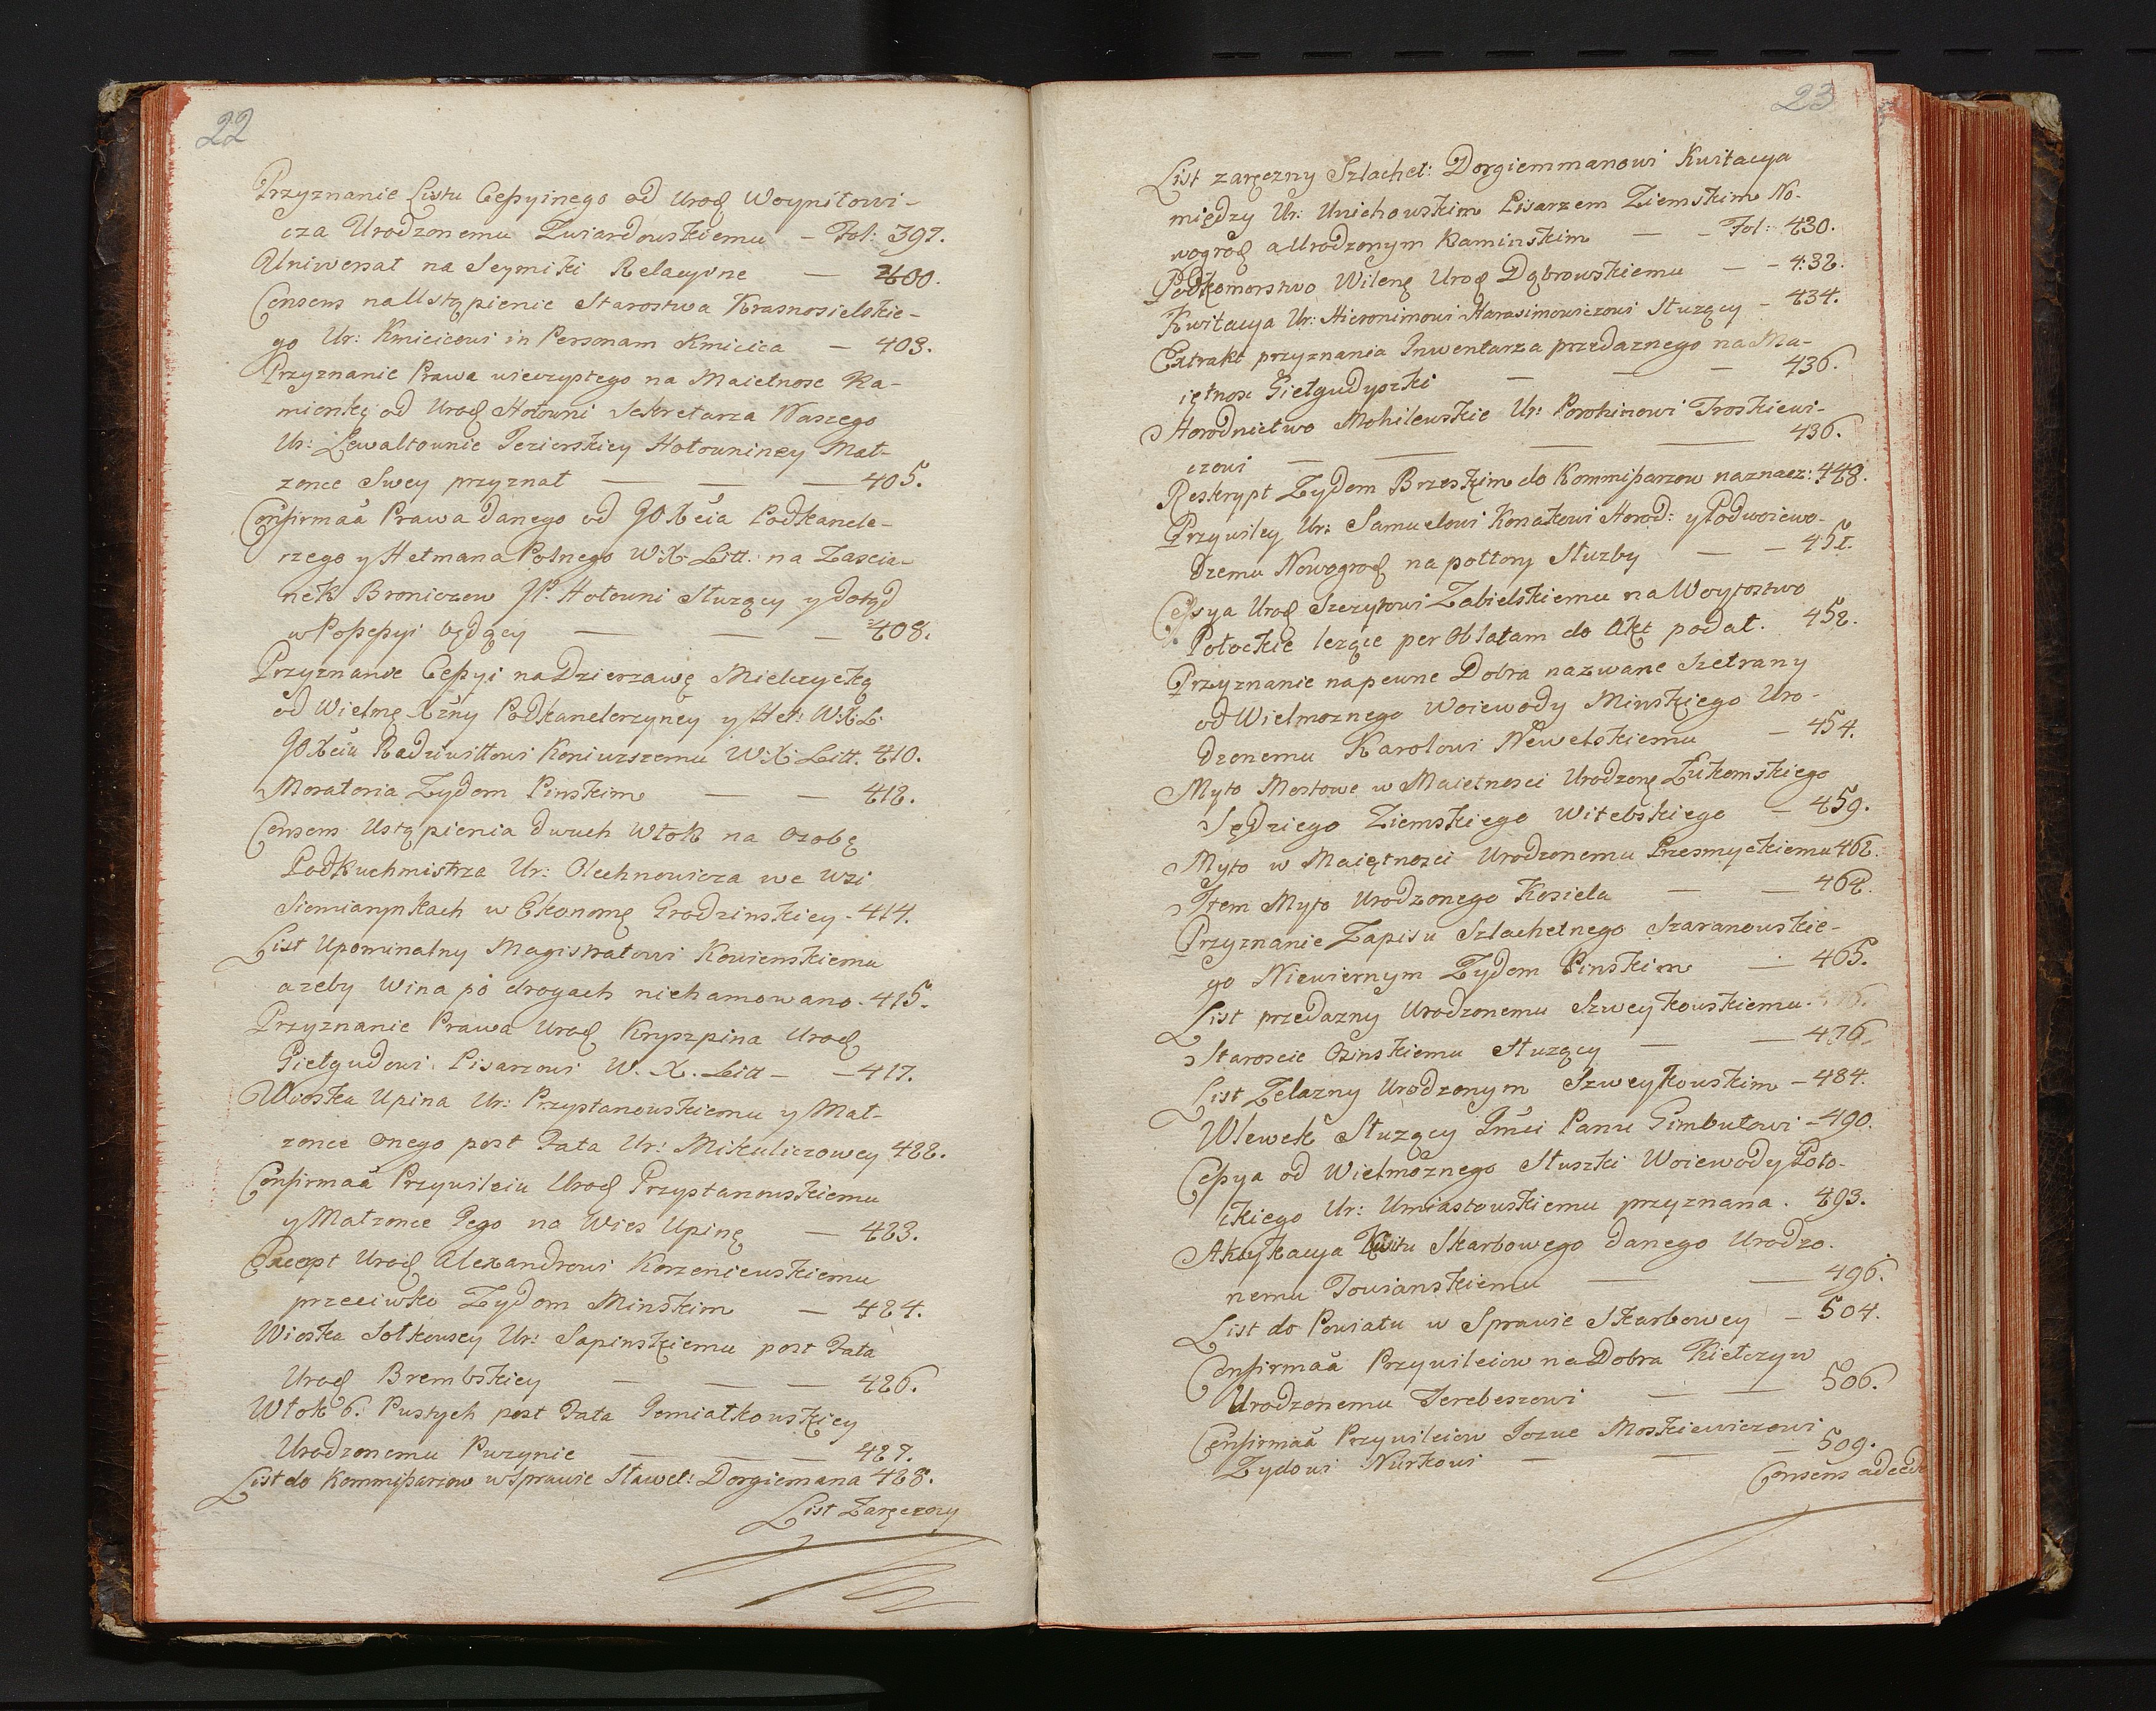 22
Przyznanie Listu Cessyinego od Urodz Woyniłowi-
cza Urodzonemu Zwiardowskiemu - Fol: 397.
Uniwersał na Seymiki Relacyine — 400.
Consens na Ustąpienie Starostwa Krasnosielskie-
go Ur: Kmicicowi in Personam Kmicica — 403.
Przyznanie Prawa wieczystego na Maietnosc Ka-
mionkę od Urodz Hołowni Sekretarza Naszego
Ur: Lewaltownie Jezierskiey Hołowniney Mał-
zonce Swey przyznał — — — 405.
Confirmaã Prawa danego od JO Xcia Podkancle-
rzego y Hetmana Polnego W: X: Litt: na Zascia-
nek Broniczew JP. Hołowni Służący y dotąd
w Possessyi będący — — — 408.
Przyznanie Cessyi na Dzierzawę Mielczycką
od Wielmę Xżny Podkanclerzyney y Het: W: X L:
JO Xciu Radziwiłłowi Koniuszemu W: X: Litt. 410.
Moratoria Zydom Pinskim — — 412.
Consens Ustąpienia dwuch Włok na Osobę
Podkuchmistrza Ur: Olechnowicza we Wsi
Siemiarynkach w Ekonomę Grodzinskiey - 414.
List Upominalny Magistratowi Kowienskiemu
azeby Wina po drogach niehamowano. 415.
Przyznanie Prawa Urodz Kryszpina Urodz
Giełgudowi Pisarzowi W. X. Litt - - 417.
Wioska Upina Ur: Przystanowskiemu y Mał-
zonce onego post Fata Ur: Mikuliczowey 422.
Confirmaã Przywileiu Urodz Przystanowskiemu
y Małzonce Jego na Wies Upinę — 423.
Precept Urodz Alexandrowi Korzeniewskiemu
przeciwko Zydom Minskim — 424.
Wioska Sołkowscy Ur: Sapinskiemu post Fata
Urodz Brembskiey — — — 426.
Włok 6. Pustych post Fata Jemiałkowskiey
Urodzonemu Puzynie — — — 427.
List do Kommissarzow w Sprawie Sławet: Dorgiemana 428.
List Zaręczny
23
List zaręczny Szlachet: Dorgiemmanowi Kwitacya
między Ur: Unichowskim Pisarzem Ziemskim No-
wogrodz a Urodzonym Kaminskim — - Fol: 430.
Podkomorstwo Wilenę Urodz Dąbrowskiemu — - 432.
Kwitacya Ur: Hieronimowi Harasimowiczowi Służący - 434.
Extrakt przyznania Inwentarza przedaznego na Ma-
iętnosc Giełgudyszki — — — 436.
Horodnictwo Mohilewskie Ur: Porohinowi Troskiewi-
czowi — — — — 436.
Reskrypt Zydom Brzeskim do Kommissarzow naznacz: 448.
Przywiley Ur: Samuelowi Konakowi Horod: y Podwoiewo-
dzemu Nowogrodz na połtory Służby — - 451.
Cessya Urodz Szczytowi Zabielskiemu na Woytostwo
Połockie lezące per Oblatam do Akt podał. 452.
Przyznanie na pewne Dobra nazwane Szetrany
od Wielmoznego Woiewody Minskiego Uro-
dzonemu Karolowi Newelskiemu — 454.
Myto Mostowe w Maietnosci Urodzonę Łukomskiego
Sędziego Ziemskiego Witebskiego - 459.
Myto w Maiętnosci Urodzonemu Przesmyckiemu 462.
Item Myto Urodzonego Kosiela — — 464.
Przyznanie Zapisu Szlachetnego Szaranowskie-
go Niewiernym Zydom Pinskim — 465.
List przedazny Urodzonemu Szweykowskiemu. 476.
Staroscie Osinskiemu Służący — — 476.
List Zelazny Urodzonym Szweykowskim - 484.
Wlewek Służący Jmci Panu Gimbutowi - 490.
Cessya od Wielmożnego Słuszki Woiewody Poło-
ckiego Ur: Umiastowskiemu przyznana. 493.
Aktykacya Kwitu Skarbowego danego Urodzo-
nemu Towianskiemu — — 496.
List do Powiatu w Sprawie Skarbowey - 504.
Confirmaã Przywileiow na Dobra Kiełczyw
Urodzonemu Terebeszowi — — 506.
Confirmaã Przywileiow Jozue Moskiewiczowi
Zydowi Nurkowi — — — 509.
Consens ad ced